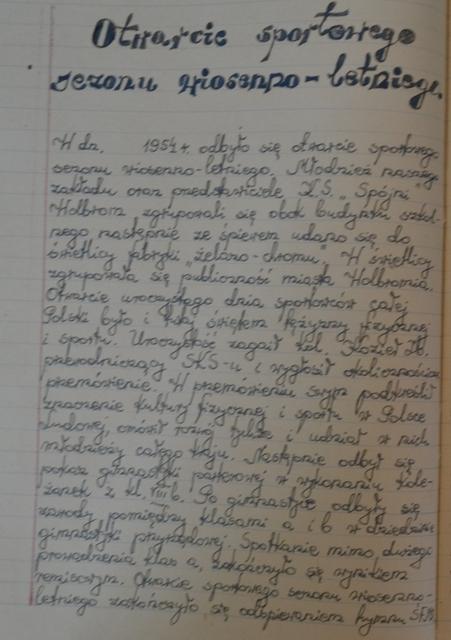 Otwarcie sportowego
sezonu wiosenno-letniego.
W dn. 1954 r. odbyło się otwarcie sportowego
sezonu wiosenno-letniego. Młodzież naszego
zakładu oraz przedstawiciele Z.S. "Spójni"
Wolbrom zgrupowali się obok budynku szkol-
nego następnie ze śpiewem udano się do
świetlicy fabryki "żelazo-chromu". W świetlicy
zgrupowała się publiczność miasta Wolbromia.
Otwarcie uroczystego dnia sportowców całej
Polski było i tutaj świętem tężyzny fizycznej
i sportu. Uroczystość zagaił kol. Kozieł
przewodniczący SKS-u i wygłosił okolicznościowe
przemówienie. W przemówieniu swym podkreślił
znaczenie kultury fizycznej i sportu w Polsce
Ludowej, omówił rozwój tychże i udział w nich
młodzieży całego kraju. Następnie odbył się
pokaz gimnastyki pokazowej w wykonaniu kole-
żanek z kl. VIII b. Po gimnastyce odbyły się
zawody pomiędzy klasami a i b w dziedzinie
gimnastyki przyrządowej. Spotkanie mimo dużego
prowadzenia klas a, zakończyło się wynikiem
remisowym. Otwarcie sportowego sezonu wiosenno-
letniego zakończyło się odśpiewaniem hymnu Ś.F.M.